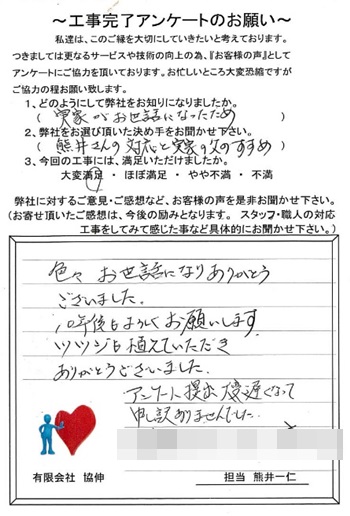 ～工事完了アンケートのお願い～
私達は、このご縁を大切にしていきたいと考えております。
つきましては更なるサービスや技術の向上の為、『お客様の声』として
アンケートにご協力を頂いております。お忙しいところ大変恐縮ですが
ご協力の程お願い致します。
1、どのようにして弊社をお知りになりましたか。
(実家がお世話になったため)
2、弊社をお選び頂いた決め手をお聞かせ下さい。
(熊井さんの対応と実家の父のすすめ)
3、今回の工事には、満足いただけましたか。
大変満足 ・ ほぼ満足 ・ やや不満 ・ 不満
弊社に対するご意見・ご感想など、お客様の声を是非お聞かせ下さい。
(お寄せ頂いたご感想は、今後の励みとなります。 スタッフ・職人の対応
工事をしてみて感じた事など具体的にお聞かせ下さい。)
色々 お世話になりありがとう
ございました。
10年後もよろしくお願いします
ツツジも植えていただき
ありがとうございました。
アンケート提出 遅くなって
申し訳ありませんでした。
有限会社 協伸
担当 熊井一仁